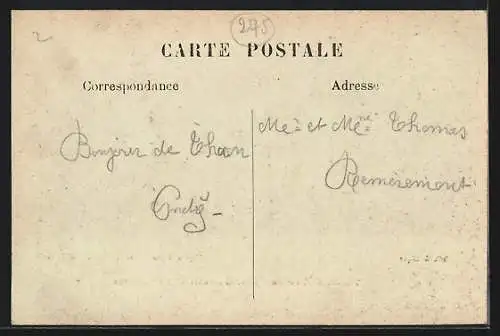 2
295
CARTE POSTALE
Correspondance
Adresse
Bonjour de Thann
Me et Mme Thomas
Remiremont